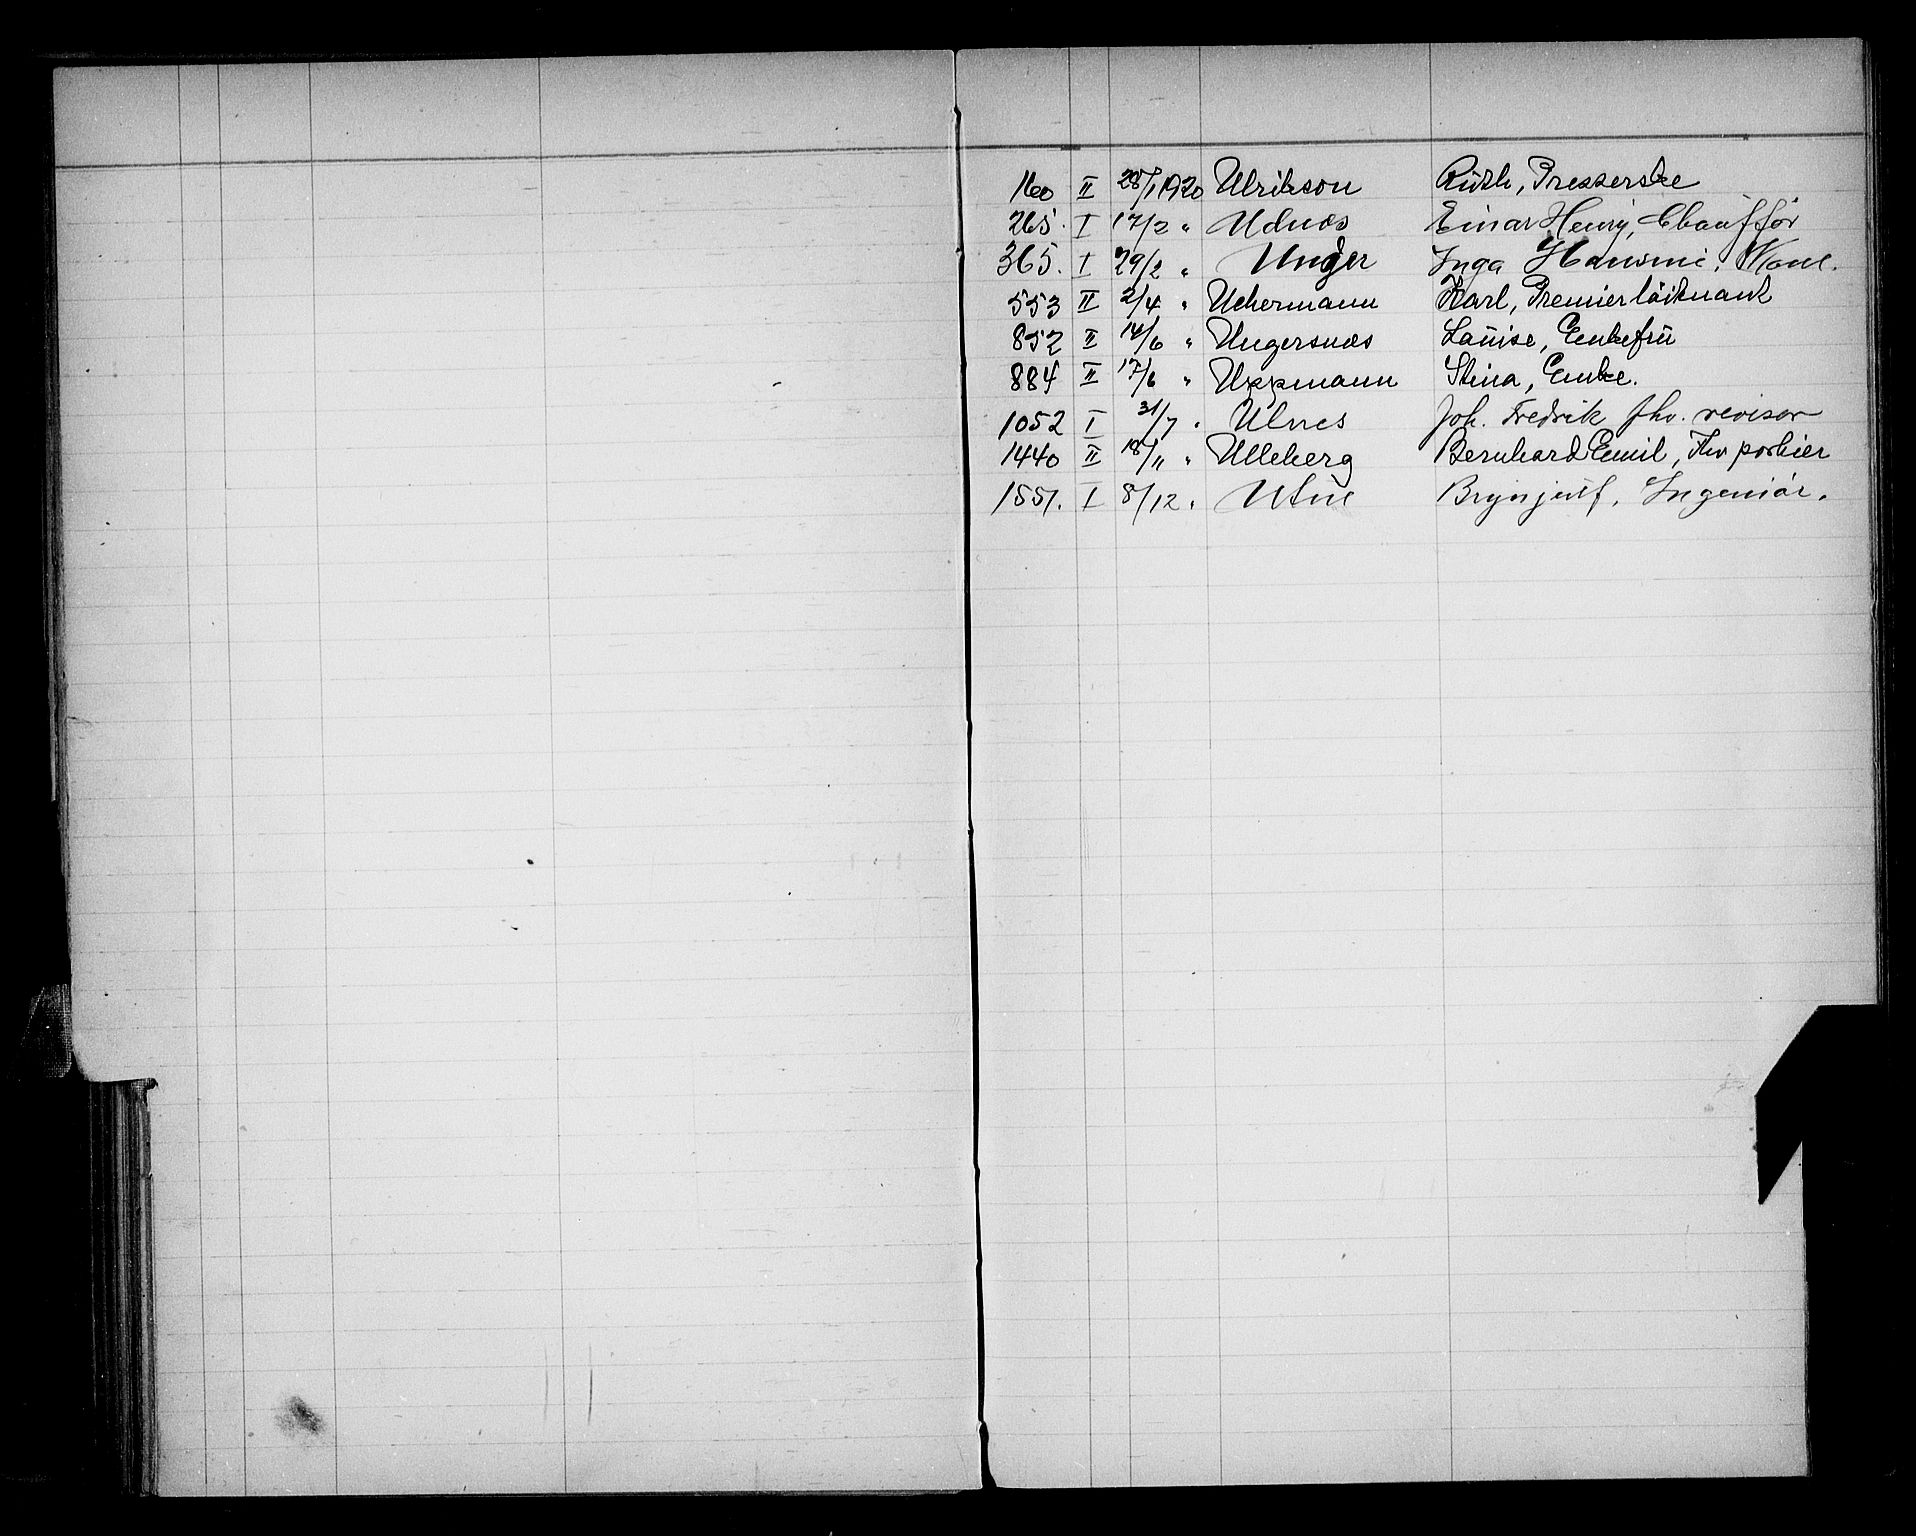 160 II 28/1 1920 Ulrikson Ruth, Presserske
265. I 17/2 " Udnæs Einar Henry, Chauffør
365. I 29/2 " Unger Inga Hansine, Kone.
553 II 2/4 " Uchermann Karl, Premierløitnant
852 II 14/6 " Ungersnæs Louise, Enkefru
884 II 17/6 " Uppmann Stina, Enke.
1052 I 31/7 " Ulnes Joh. Fredrik fhv. revisor
1440 II 18/11 " Ulleberg Bernhard Emil, Fhv portier
1551. I 8/12 " Utne Brynjulf, Ingeniør.